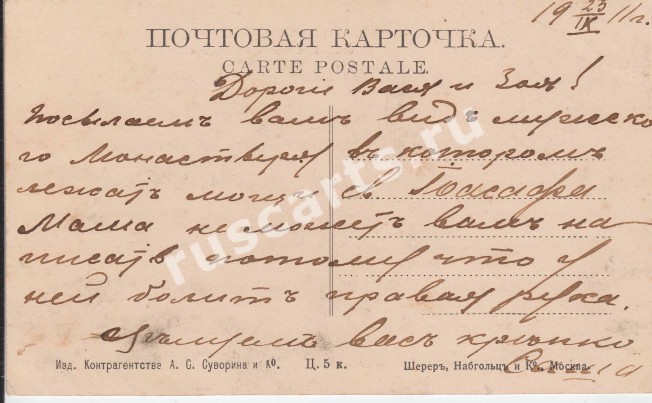 19 23/IX 11 г.
ПОЧТОВАЯ КАРТОЧКА.
CARTE POSTALE.
Дорогіе Вася и Зоя!
Посылаемъ вамъ видъ мужско
го Монастыря въ которомъ
лежатъ мощи св Іосафа
Мама не можетъ вамъ на
писать потому что у
ней болитъ правая рука.
Цѣлуемъ васъ крѣпко
ruscarts.ru
Изд. Контрагентства А. С. Суворина и Ко. Ц. 5 к. Шереръ, Набгольцъ и Ко, Москва.